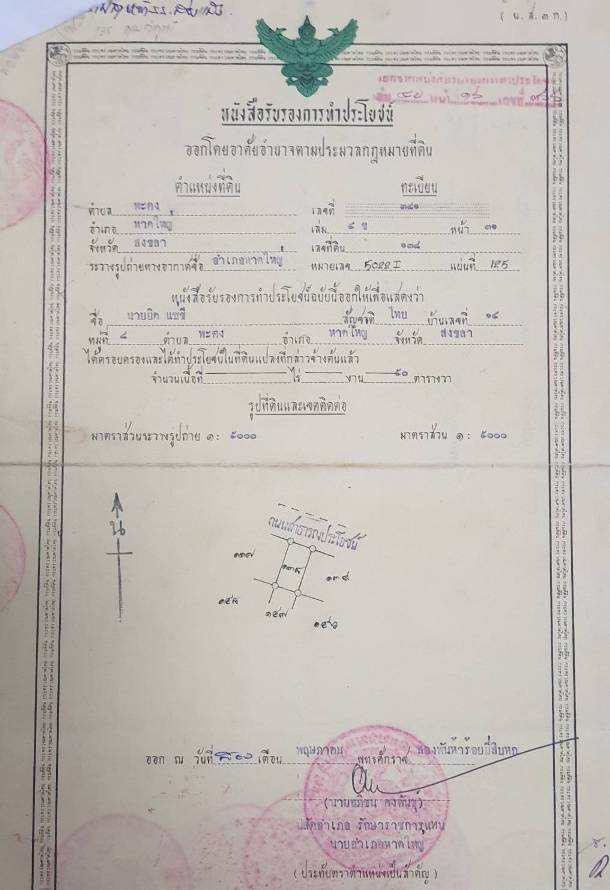 ( น.ส.๓ ก.)
หนังสือรับรองการทำประโยชน์
ออกโดยอาศัยอำนาจตามประมวลกฎหมายที่ดิน
ตำแหน่งที่ดิน ทะเบียน
ตำบล พะตง เลขที่ ๓๘๑
อำเภอ หาดใหญ่ เล่ม ๔ ข หน้า ๓๑
จังหวัด สงขลา เลขที่ดิน ๑๓๘
ระวางรูปถ่ายทางอากาศชื่อ อำเภอหาดใหญ่ หมายเลข 5022 I แผ่นที่ 125
หนังสือรับรองการทำประโยชน์ฉบับนี้ออกให้เพื่อแสดงว่า
ชื่อ นายยิด แซซี่ สัญชาติ ไทย บ้านเลขที่ ๑๔
หมู่ที่ ๘ ตำบล พะตง อำเภอ หาดใหญ่ จังหวัด สงขลา
ได้ครอบครองและได้ทำประโยชน์ในที่ดินแปลงที่กล่าวข้างต้นแล้ว
จำนวนเนื้อที่ ไร่ งาน ๕๐ ตารางวา
รูปที่ดินและเขตติดต่อ
มาตราส่วนระวางรูปถ่าย ๑: ๕๐๐๐ มาตราส่วน ๑ : ๕๐๐๐
น
ถนนสาธารณประโยชน์
๑๓๘
ออก ณ วันที่ เดือน พฤษภาคม พุทธศักราช สองพันห้าร้อยยี่สิบหก
ปลัดอำเภอ รักษาราชการแทน
นายอำเภอหาดใหญ่
( ประทับตราตำแหน่งเป็นสำคัญ )